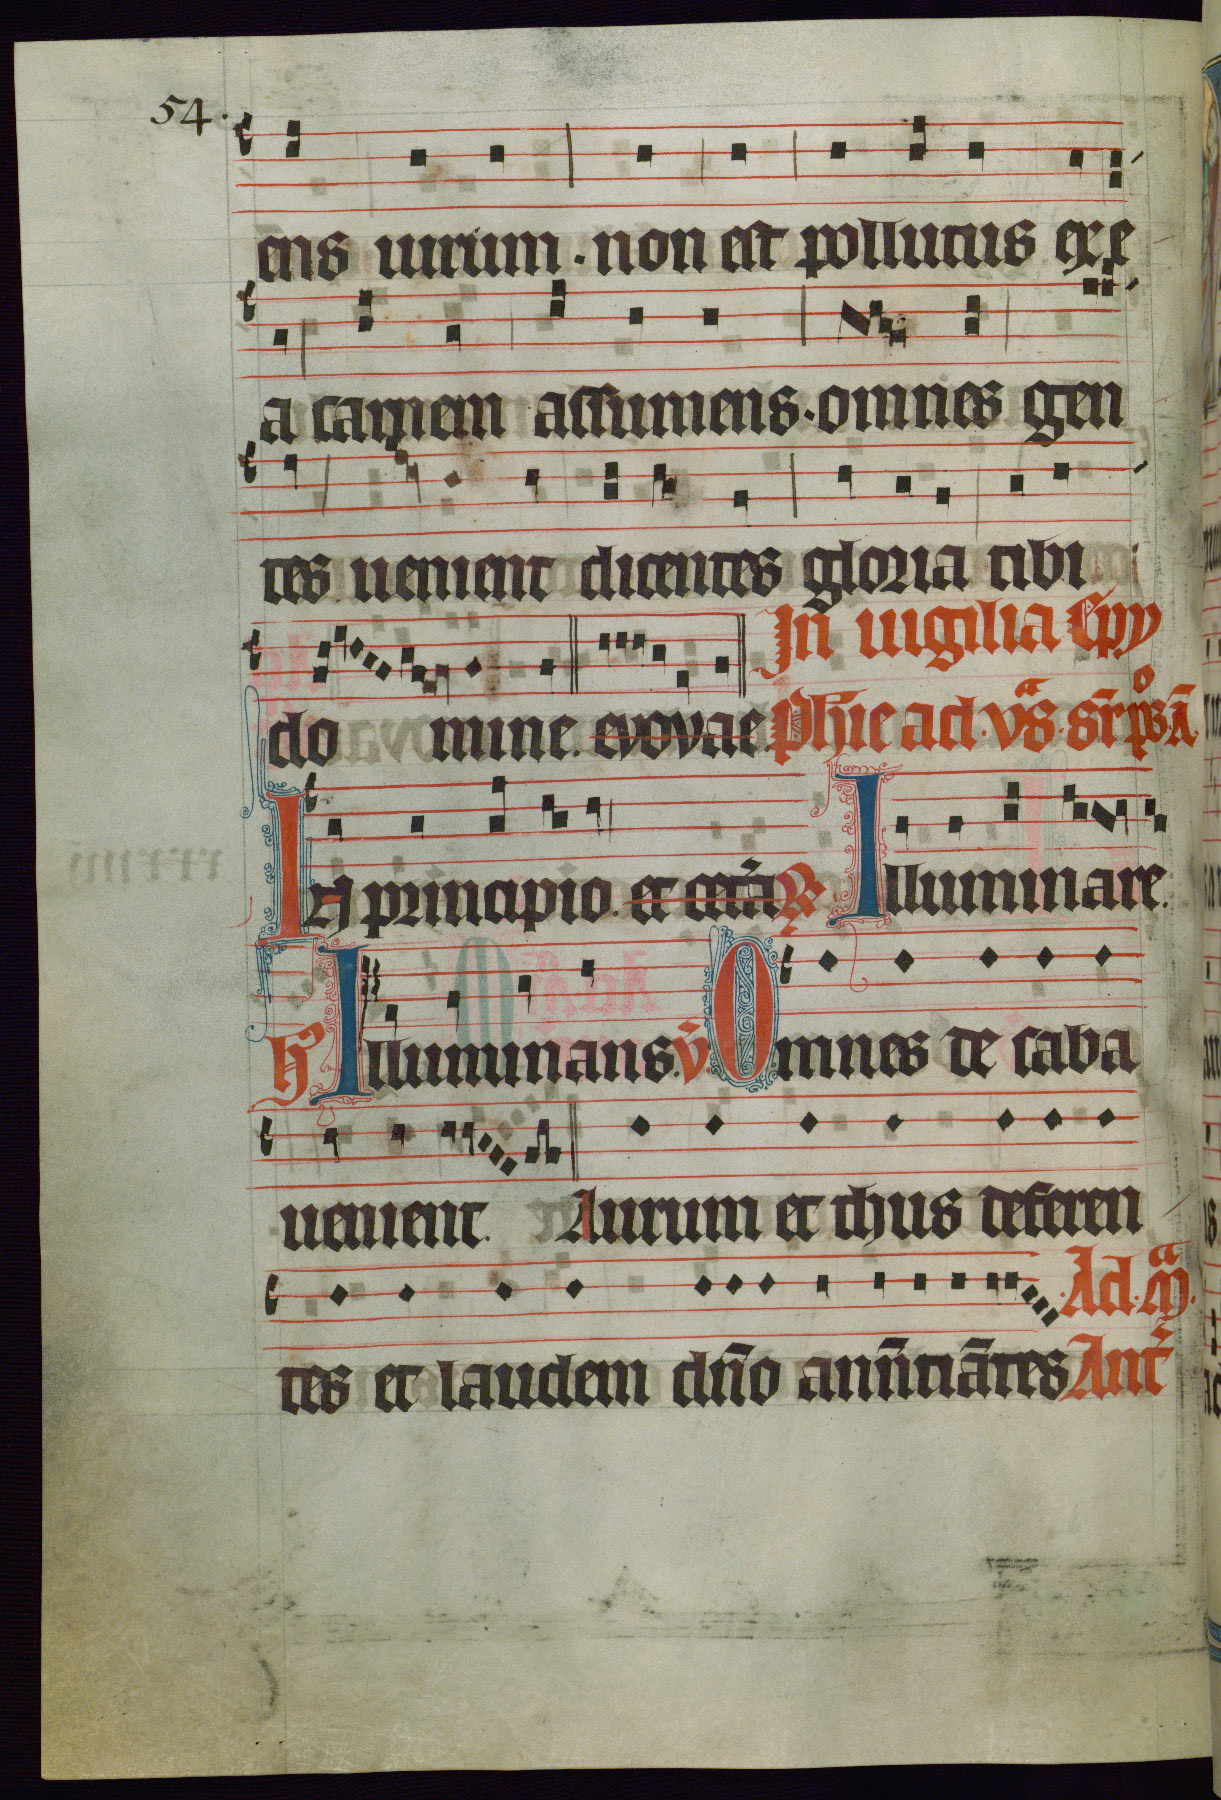 54.
ens uirum. non est pollutus ex e
a carnem assumens. omnes gen
tes uenient dicentes gloria tibi
do mine. evovae. In uigilia Epy
phīe ad. vꝰ̄s. sr̄ pꝰs Ā
In principio. et cetā ℟ Illuminare.
hꝰ Illuminans. v̄. Omnes de saba
uenient. Aurum et thus deferen
tes et laudem dn̄o anūtiātes Ad. M̄. Ant̄